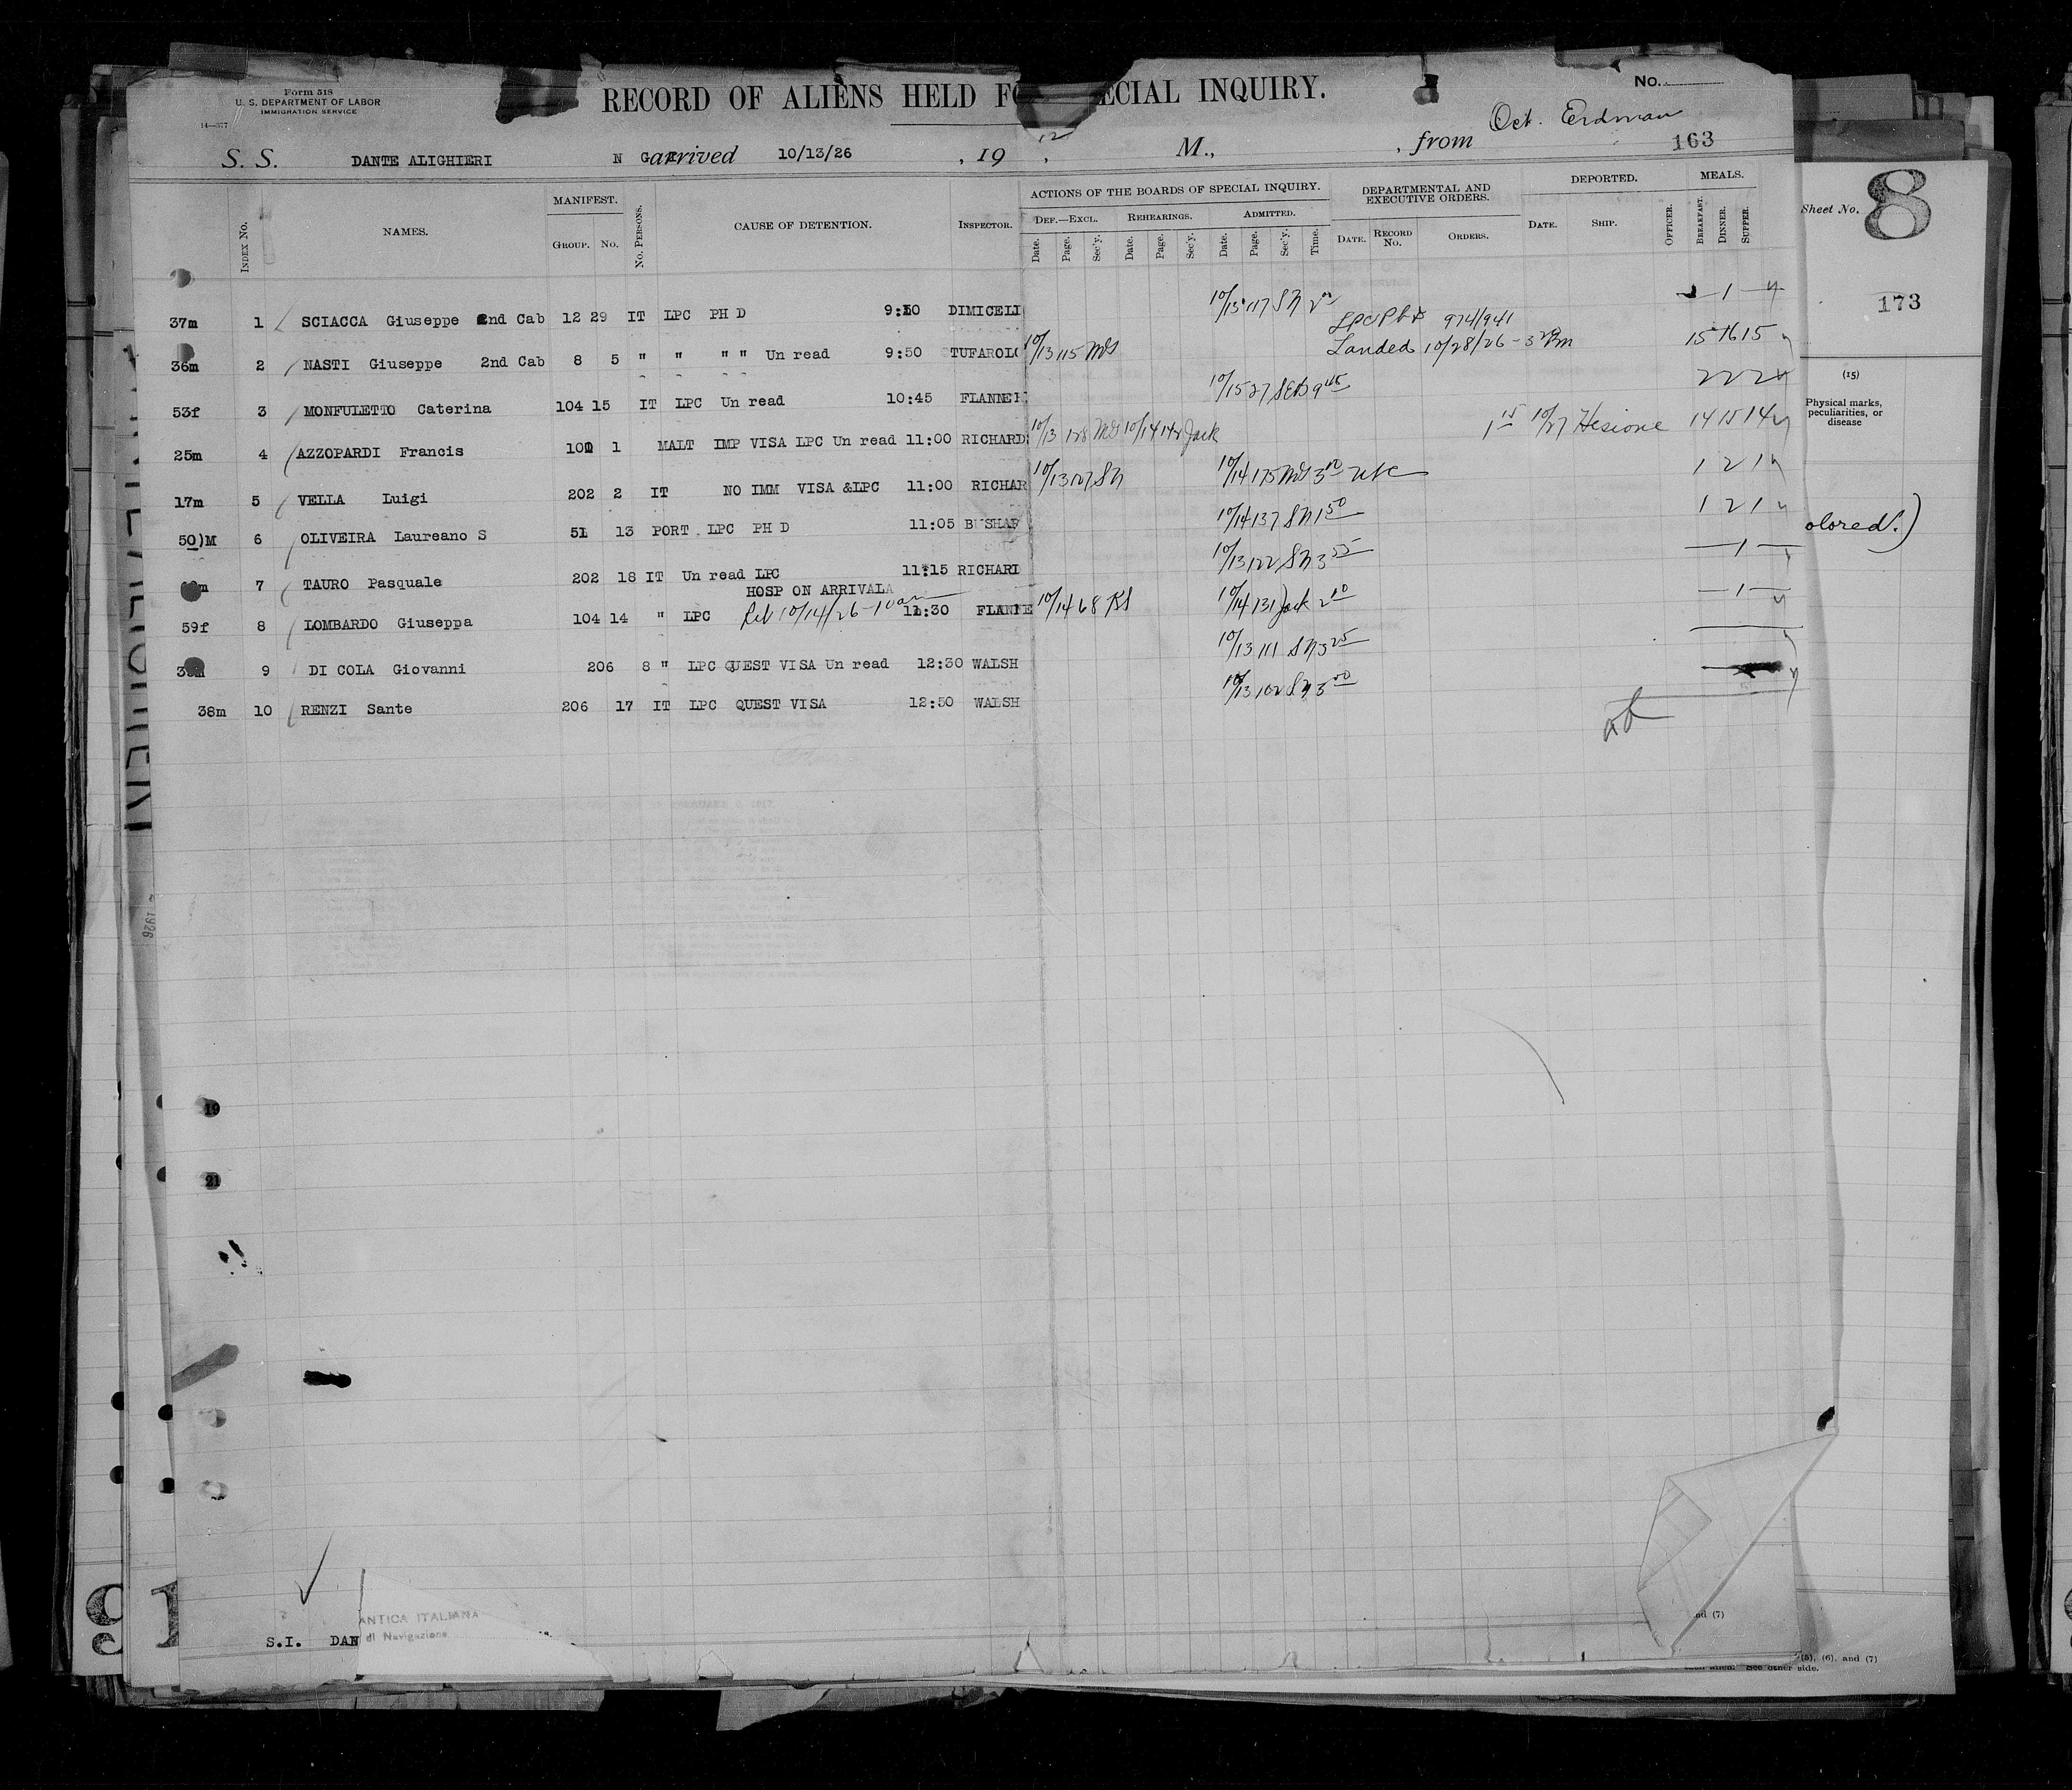 Form 518
U. S. DEPARTMENT OF LABOR
IMMIGRATION SERVICE
14—377
RECORD OF ALIENS HELD FO ECIAL INQUIRY.
No.
Oct. Erdman
163
S. S. DANTE ALIGHIERI N G arrived 10/13/26 , 19 , 12 M., , from
Index No.
NAMES.
MANIFEST.
Group. No.
No. Persons.
CAUSE OF DETENTION.
Inspector.
ACTIONS OF THE BOARDS OF SPECIAL INQUIRY.
Def.—Excl. Rehearings. Admitted.
Date. Page. Sec'y. Date. Page. Sec'y. Date. Page. Sec'y. Time.
DEPARTMENTAL AND EXECUTIVE ORDERS.
Date. Record No. Orders.
DEPORTED.
Date. Ship. Officer.
MEALS.
Breakfast. Dinner. Supper.
37m 1 SCIACCA Giuseppe 2nd Cab 12 29 IT LPC PH D 9:50 DIMICELI 10/13 117 SN 1
LPC Ph D 974/941
36m 2 NASTI Giuseppe 2nd Cab 8 5 " " " " Un read 9:50 TUFAROLO 10/13 115 Landed 10/28/26 - 15 16 15
53f 3 MONFULETTO Caterina 104 15 IT LPC Un read 10:45 FLANNE 10/15 27 9 45 2 2 2
25m 4 AZZOPARDI Francis 100 1 MALT IMP VISA LPC Un read 11:00 RICHARD 10/13 128 10/14 142 Jack 1 15 10/27 Hesione 14 15 14
17m 5 VELLA Luigi 202 2 IT NO IMM VISA &LPC 11:00 RICHAR 10/13 127 SN 10/14 175 3 10 1 2 1
50)M 6 OLIVEIRA Laureano S 51 13 PORT LPC PH D 11:05 BUSHAR 10/14 137 SN 1 50 1 2 1
7 TAURO Pasquale 202 18 IT Un read LPC 11:15 RICHARD 10/13 122 SN 3 55 1
HOSP ON ARRIVAL
59f 8 LOMBARDO Giuseppa 104 14 " LPC Rel 10/14/26 - 10 am 11:30 FLANNE 10/14 68 10/14 131 Jack 2 10 1
9 DI COLA Giovanni 206 8 " LPC QUEST VISA Un read 12:30 WALSH 10/13 111 SN 3 25
38m 10 RENZI Sante 206 17 IT LPC QUEST VISA 12:50 WALSH 10/13 102 SN 3 00
19
21
S.I. DAN
ANTICA ITALIANA
di Navigazione
Sheet No. 8
173
(15)
Physical marks, peculiarities, or disease
olored.)
nd (7)
(5), (6), and (7)
See other side.
1926